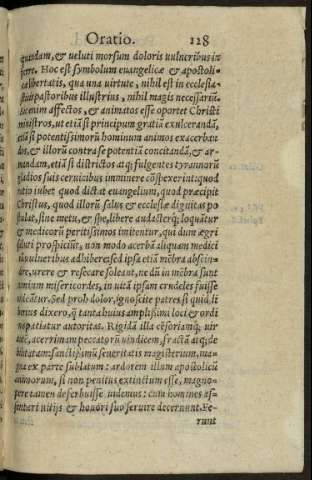 Oratio. 128
quendam, & veluti morsum doloris vulneribus in
ferre. Hoc est symbolum euangelicæ & apostoli-
cæ libertatis, qua una virtute, nihil est in ecclesiæ
pastoribus illustrius, nihil magis necessariũ.
Sic enim affectos, & animatos esse oportet Christi
ministros, ut etiã si principum gratiã exulcerandã,
etiã si potentissimorũ hominum animos exacerbãdos,
dos, & illorũ contra se potentiã concitandã, & ar-
mandam, etiã si districtos atq; fulgentes tyrannorũ
gladios suis cervicibus imminere cõspexerint: quod
ratio iubet quod dictat euangelium, quod præcipit
Christus, quod illorũ salus & ecclesiæ dignitas po
stulat, sine metu, & spe, libere audacterq; loquãtur
& medicorũ peritissimos imitentur, qui dum ægri
saluti prospiciũt, non modo acerbã aliquam medici
nã vulneribus adhibere: sed ipsa etiã mẽbra abscin-
dere, urere & resecare soleant, ne dũ in mẽbra sunt
nimium misericordes, in vitã ipsam crudeles fuisse
videãtur. Sed proh dolor, ignoscite patres si quid li
berius dixero, q̃ tanta huius amplissimi loci & ordi
nis patiatur autoritas. Rigidã illa cẽsoriamq; vir
tutẽ, acerrimam peccatorũ vindicem, fractã atq; de
bilitatam: sanctissimũ severitatis magisterium, ma-
gna ex parte sublatum: ardorem illum apostolicũ
animorum, si non penitus extinctum esse, magno-
pere tamen deferbuisse videmus: cum homines as-
sentari vitijs & honori suo servire decernunt. Fe-
runt